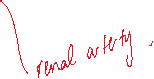 renal artery.